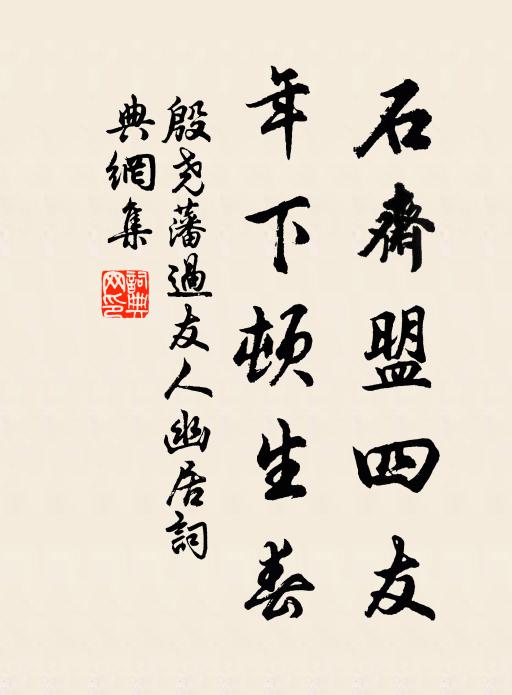 石齋盟四友
年下頓生春
殷尧藩過友人幽居詞
典網集
詞典
网印